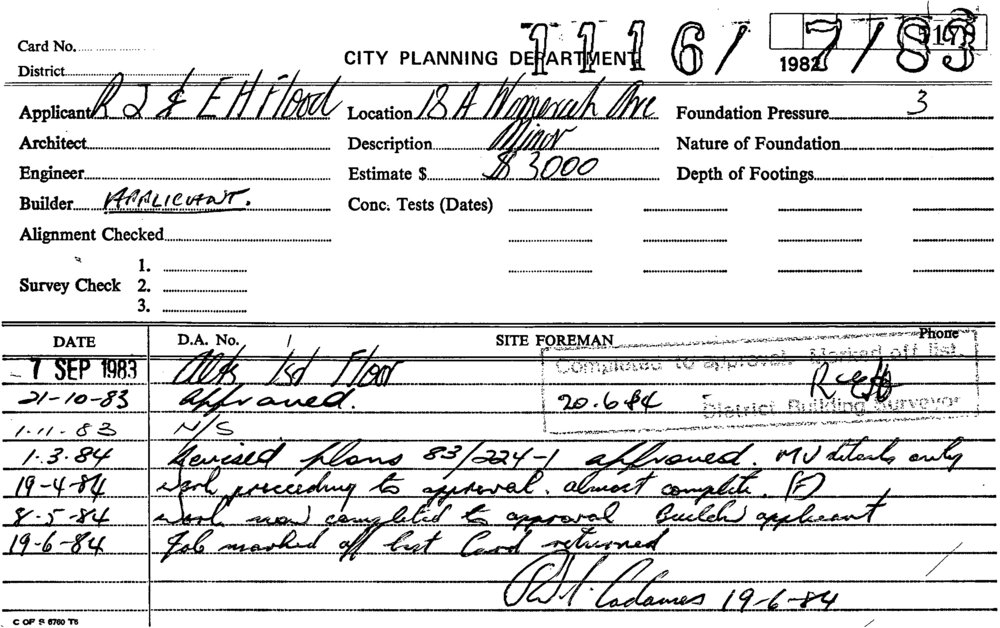 Card No.
CITY PLANNING DEPARTMENT
11116/ 7/83
1982
District
Applicant R J & E H Flood Location 18A Womerah Ave Foundation Pressure 3
Architect Description Minor Nature of Foundation
Engineer Estimate $ $ 3000 Depth of Footings
Builder APPLICANT. Conc. Tests (Dates)
Alignment Checked
Survey Check 1.
2.
3.
DATE D.A. No. SITE FOREMAN Phone
Completed to approval. Marked off list.
7 SEP 1983 Alts 1st Floor
21-10-83 approved. 20.6.84 District Building Surveyor
1.11.83 N/S
1.3.84 Revised plans 83/224-1 approved. MV details only
19-4-84 work proceeding to approval. almost complete. (F)
8-5-84 work now completed to approval Builder applicant
19-6-84 Job marked off list Card returned
19-6-84
C OF S 6760 T6